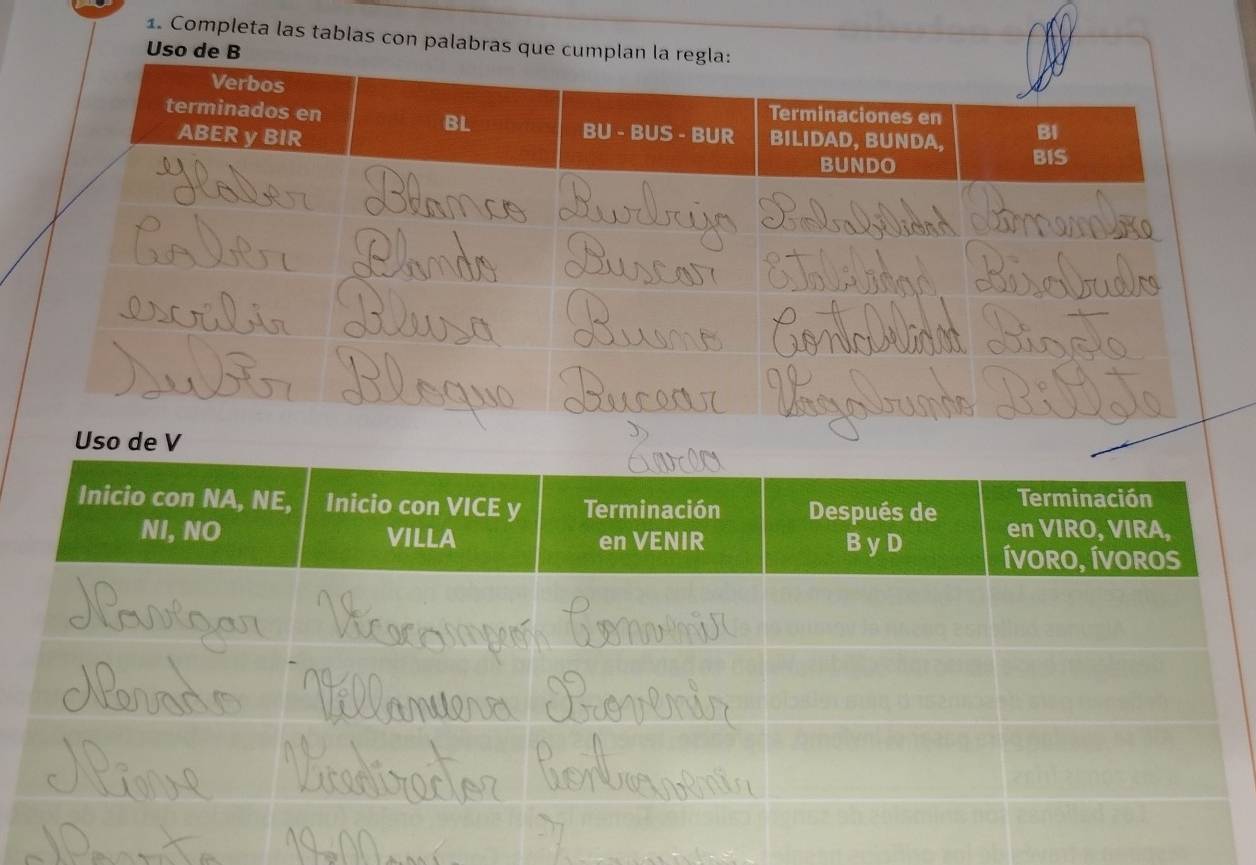 1. Completa las tablas con palabras que cumplan la regla:
Uso de B
Verbos terminados en ABER y BIR | BL | BU - BUS - BUR | Terminaciones en BILIDAD, BUNDA, BUNDO | BI BIS
Blanco | Probabilidad
Caber | Blando | Buscar | Estabilidad
escribir | Blusa | Bueno | Contabilidad | Bigote
Subir | Bloque | Bucear | Vagabundo | Billete
Uso de V
Tarea
Inicio con NA, NE, NI, NO | Inicio con VICE y VILLA | Terminación en VENIR | Después de B y D | Terminación en VIRO, VIRA, ÍVORO, ÍVOROS
Navegar | Vicecampeón
Nevado | Villanueva | Provenir
Nieve | Vicedirector | Contravenir